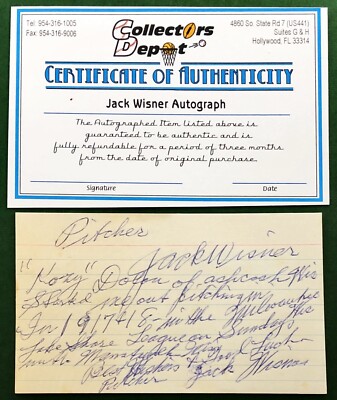 Tel: 954-316-1005
Fax: 954-316-9006
Collectors
Depot
4860 So. State Rd 7 (US441)
Suites G & H
Hollywood, FL 33314
CERTIFICATE OF AUTHENTICITY
Jack Wisner Autograph
The Autographed Item listed above is
guaranteed to be authentic and is
fully refundable for a period of three months
from the date of original purchase.
Signature
Date
Pitcher
Jack Wisner
"Kozy" Dolan of
started me out pitching in
In 1917 in the Milwaukee
Lake Shore League on Sundays
with
Best Wishes & Good Luck
Pitcher Jack Wisner